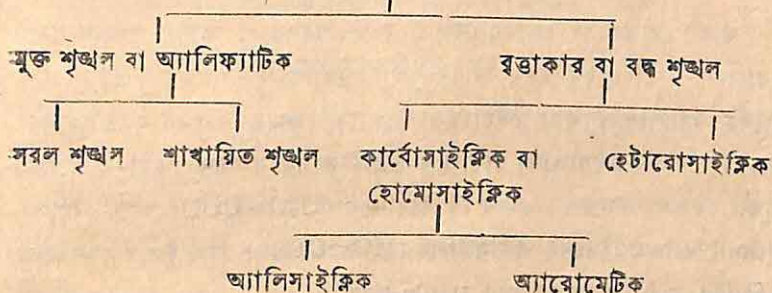 মুক্ত শৃঙ্খল বা অ্যালিফ্যাটিক বৃত্তাকার বা বদ্ধ শৃঙ্খল
সরল শৃঙ্খল শাখায়িত শৃঙ্খল কার্বোসাইক্লিক বা হেটারোসাইক্লিক
হোমোসাইক্লিক
অ্যালিসাইক্লিক অ্যারোমেটিক